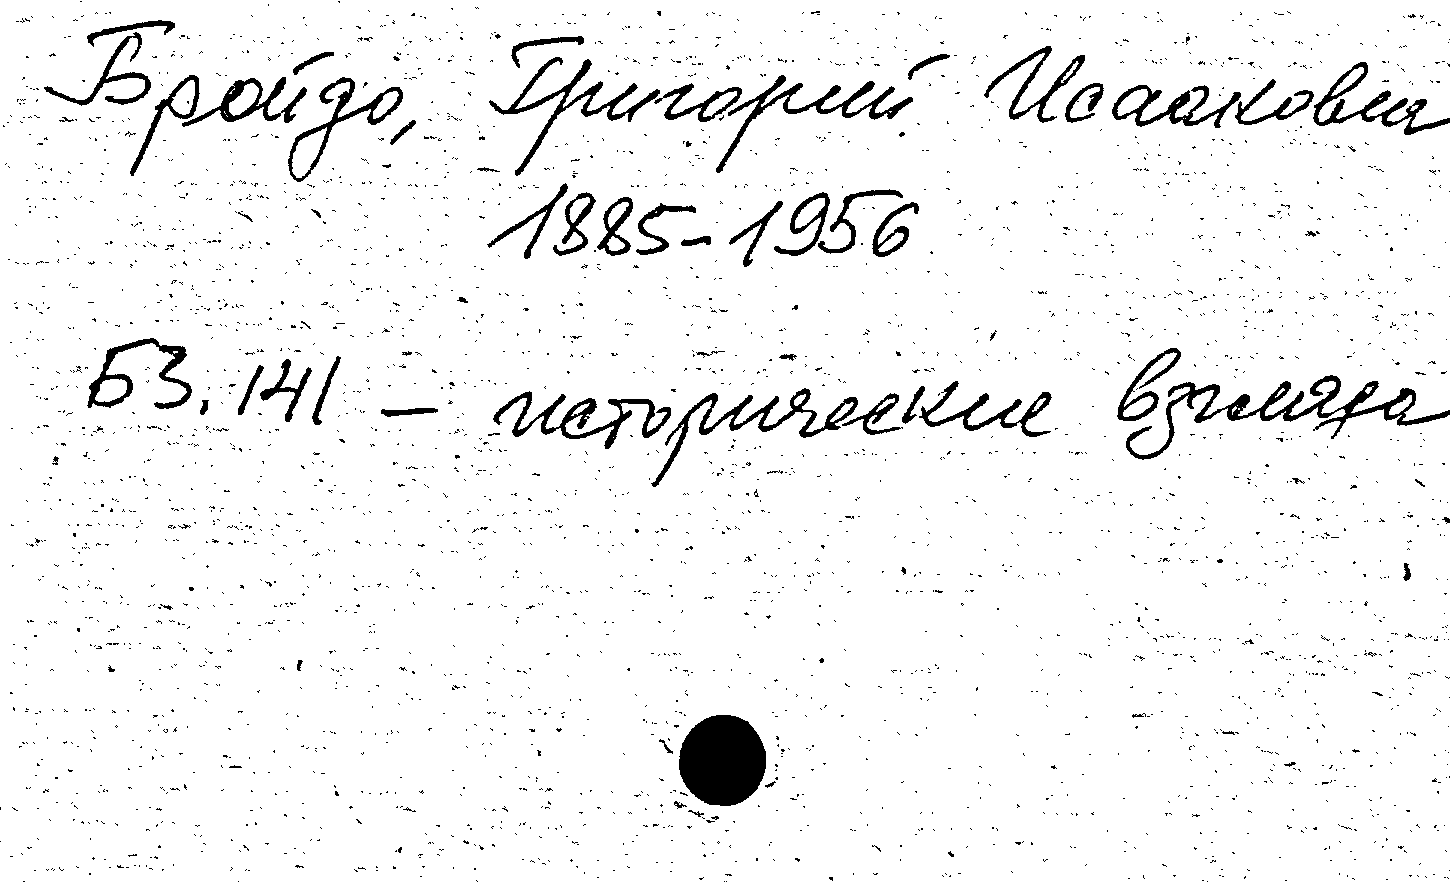 Бройдо, Григорий Исаакович
1885-1956
Б3.141 — исторические взгляды